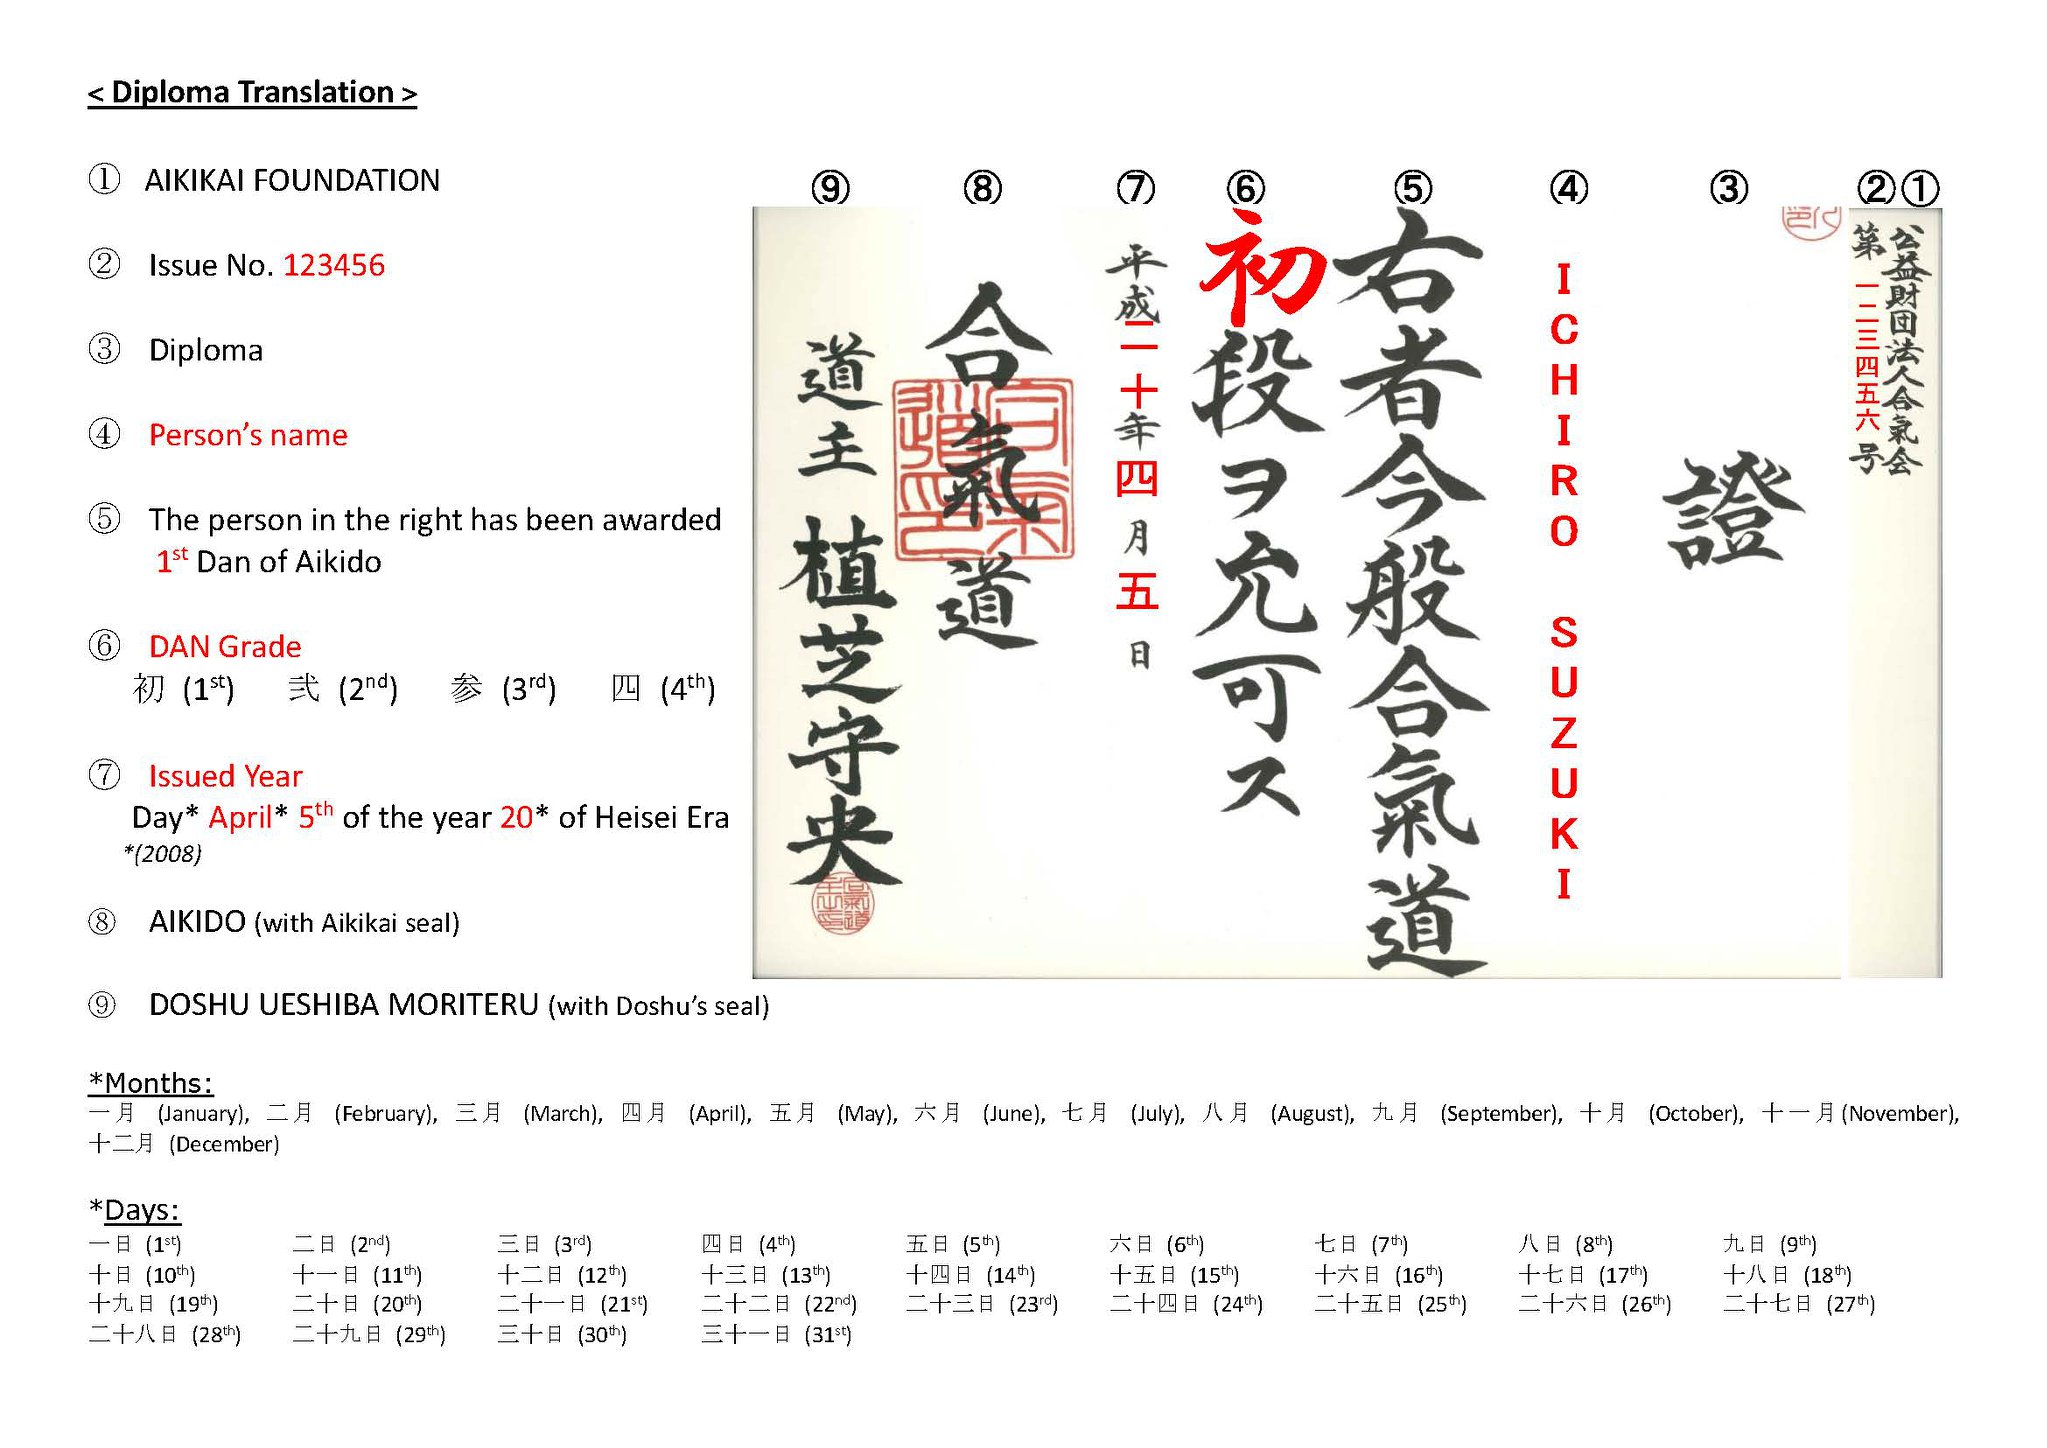 < Diploma Translation >
① AIKIKAI FOUNDATION
② Issue No. 123456
③ Diploma
④ Person’s name
⑤ The person in the right has been awarded
1st Dan of Aikido
⑥ DAN Grade
初 (1st) 弐 (2nd) 参 (3rd) 四 (4th)
⑦ Issued Year
Day* April* 5th of the year 20* of Heisei Era
*(2008)
⑧ AIKIDO (with Aikikai seal)
⑨ DOSHU UESHIBA MORITERU (with Doshu’s seal)
⑨ ⑧ ⑦ ⑥ ⑤ ④ ③ ② ①
公益財団法人合氣会
第一二三四五六号
證
ICHIRO SUZUKI
右者今般合氣道
初段ヲ允可ス
平成二十年四月五日
合氣道
道主 植芝守央
*Months:
一月 (January), 二月 (February), 三月 (March), 四月 (April), 五月 (May), 六月 (June), 七月 (July), 八月 (August), 九月 (September), 十月 (October), 十一月(November),
十二月 (December)
*Days:
一日 (1st) 二日 (2nd) 三日 (3rd) 四日 (4th) 五日 (5th) 六日 (6th) 七日 (7th) 八日 (8th) 九日 (9th)
十日 (10th) 十一日 (11th) 十二日 (12th) 十三日 (13th) 十四日 (14th) 十五日 (15th) 十六日 (16th) 十七日 (17th) 十八日 (18th)
十九日 (19th) 二十日 (20th) 二十一日 (21st) 二十二日 (22nd) 二十三日 (23rd) 二十四日 (24th) 二十五日 (25th) 二十六日 (26th) 二十七日 (27th)
二十八日 (28th) 二十九日 (29th) 三十日 (30th) 三十一日 (31st)